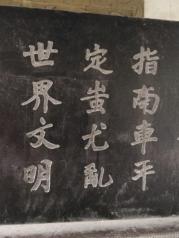 指南車平
定蚩尤亂
世界文明